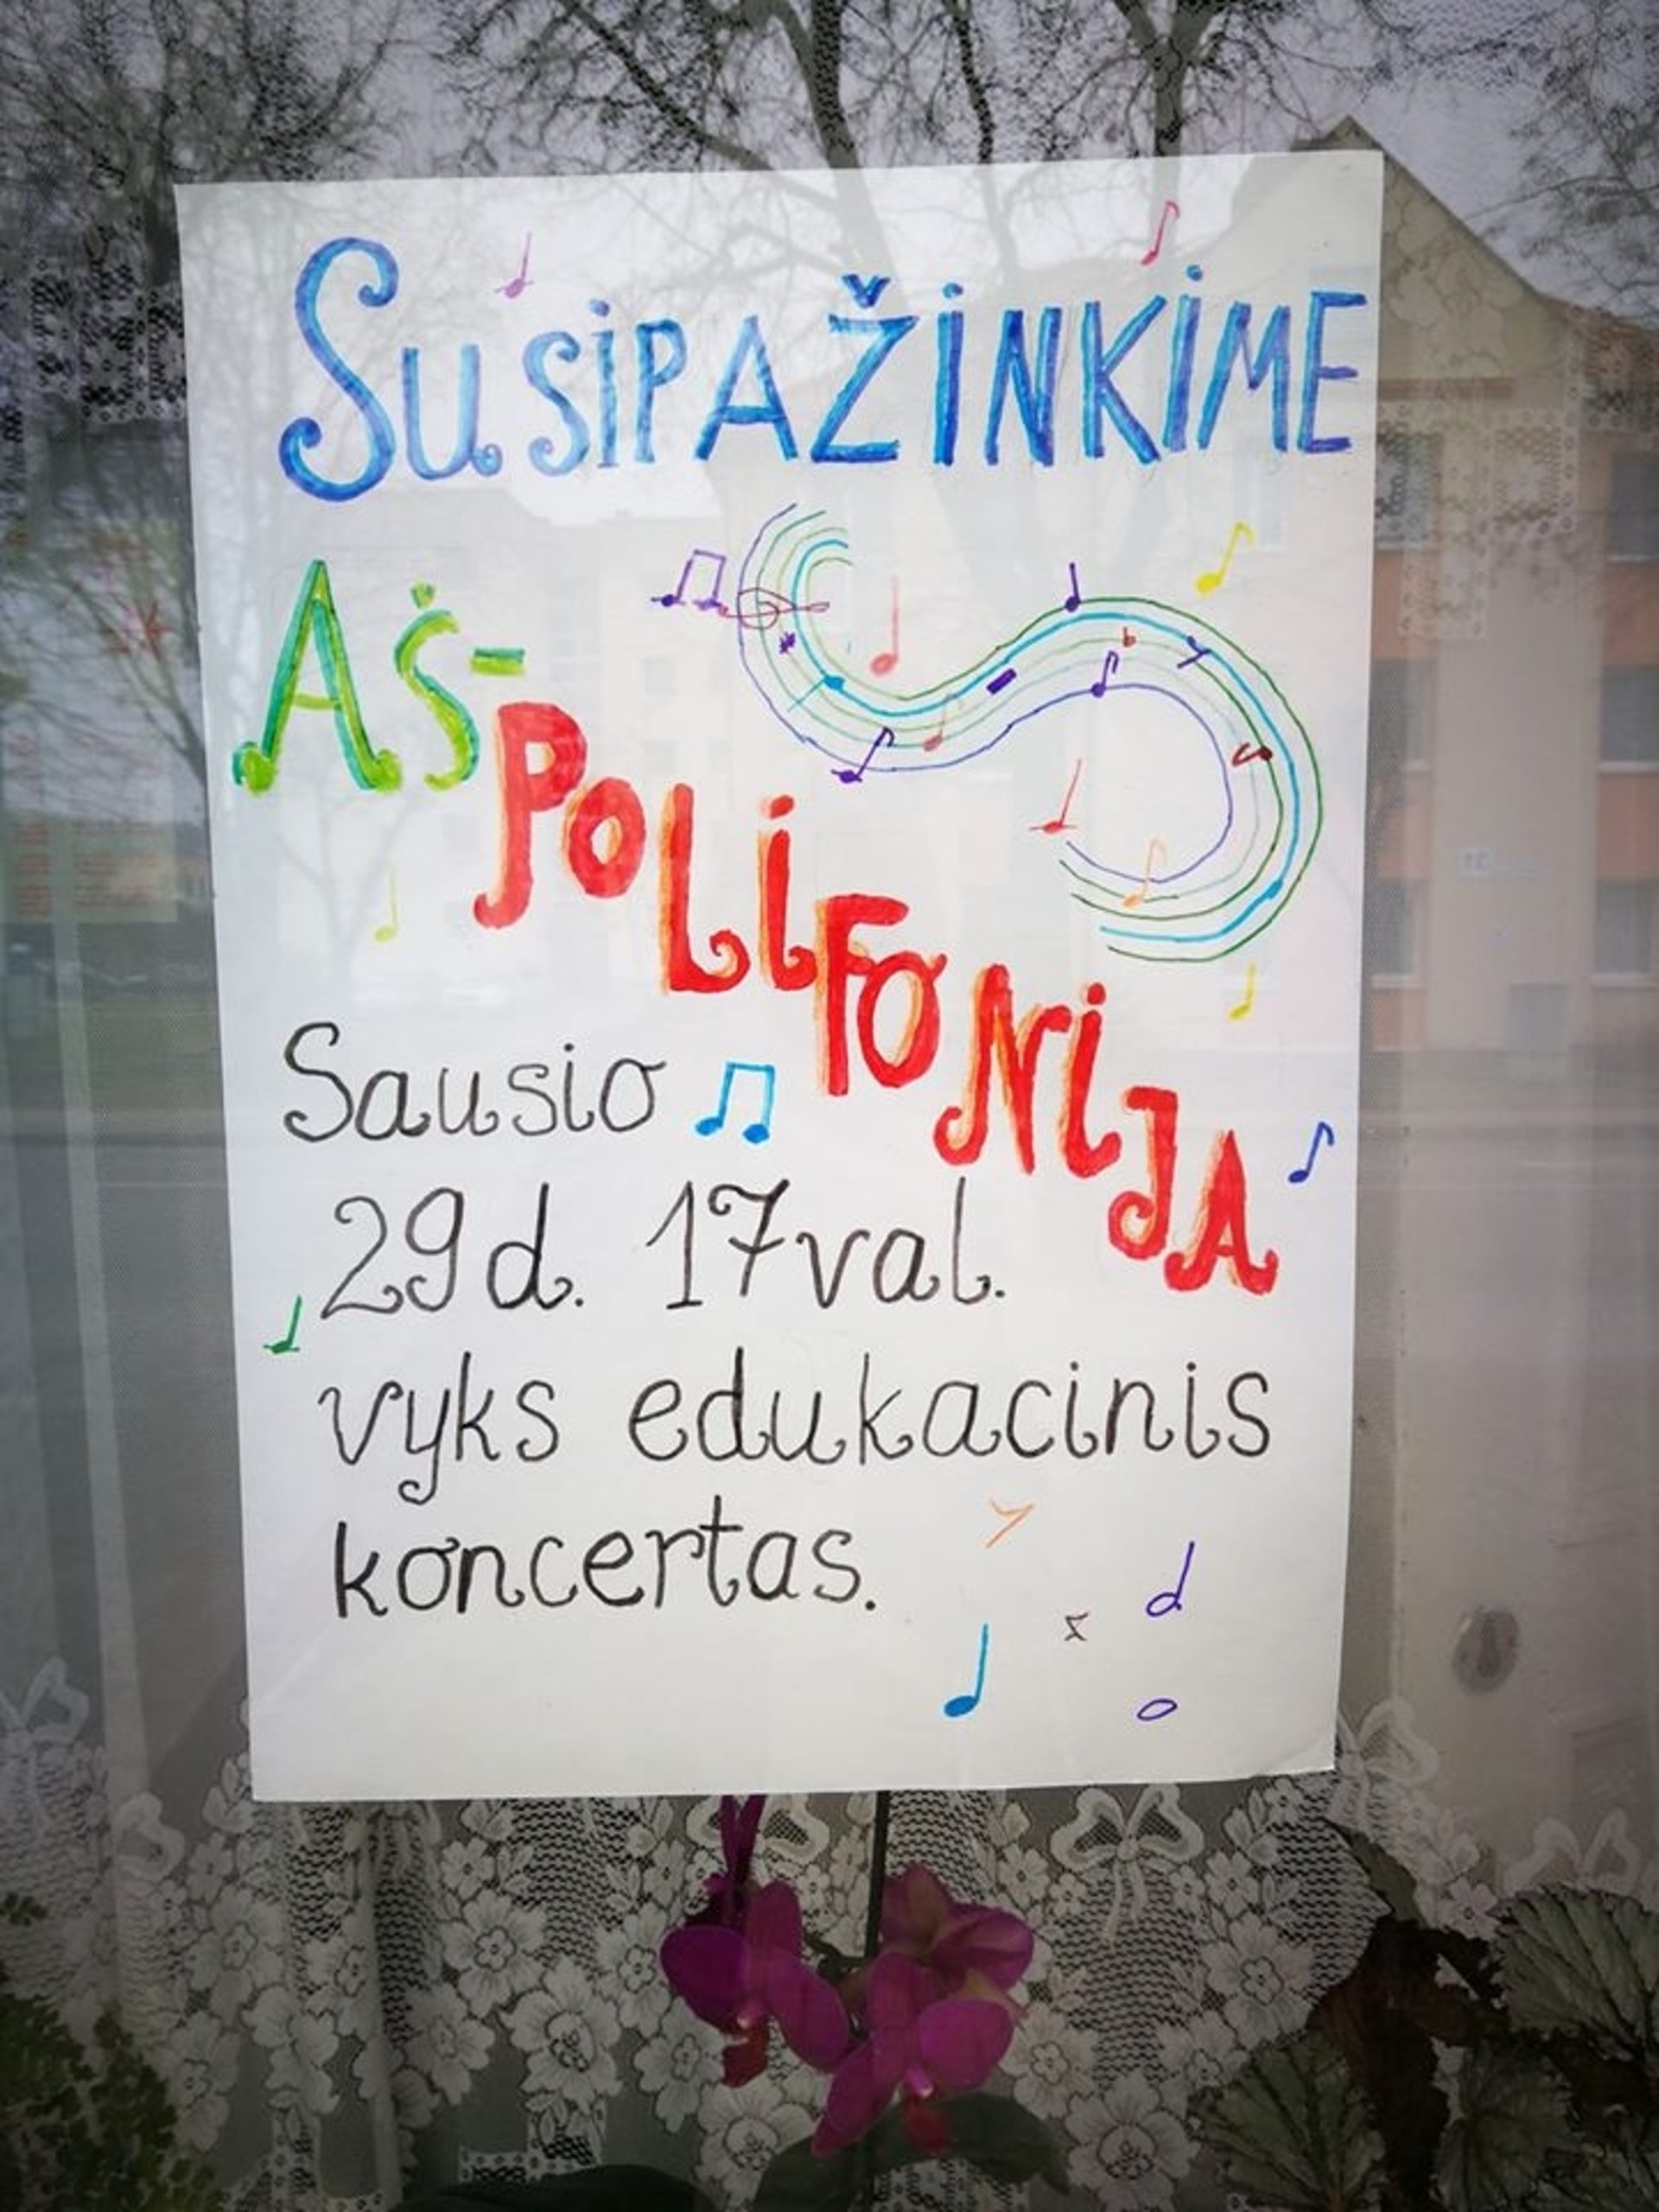 SUSIPAŽINKIME
AŠ-
POLIFONIJA
Sausio
29 d. 17 val.
vyks edukacinis
koncertas.